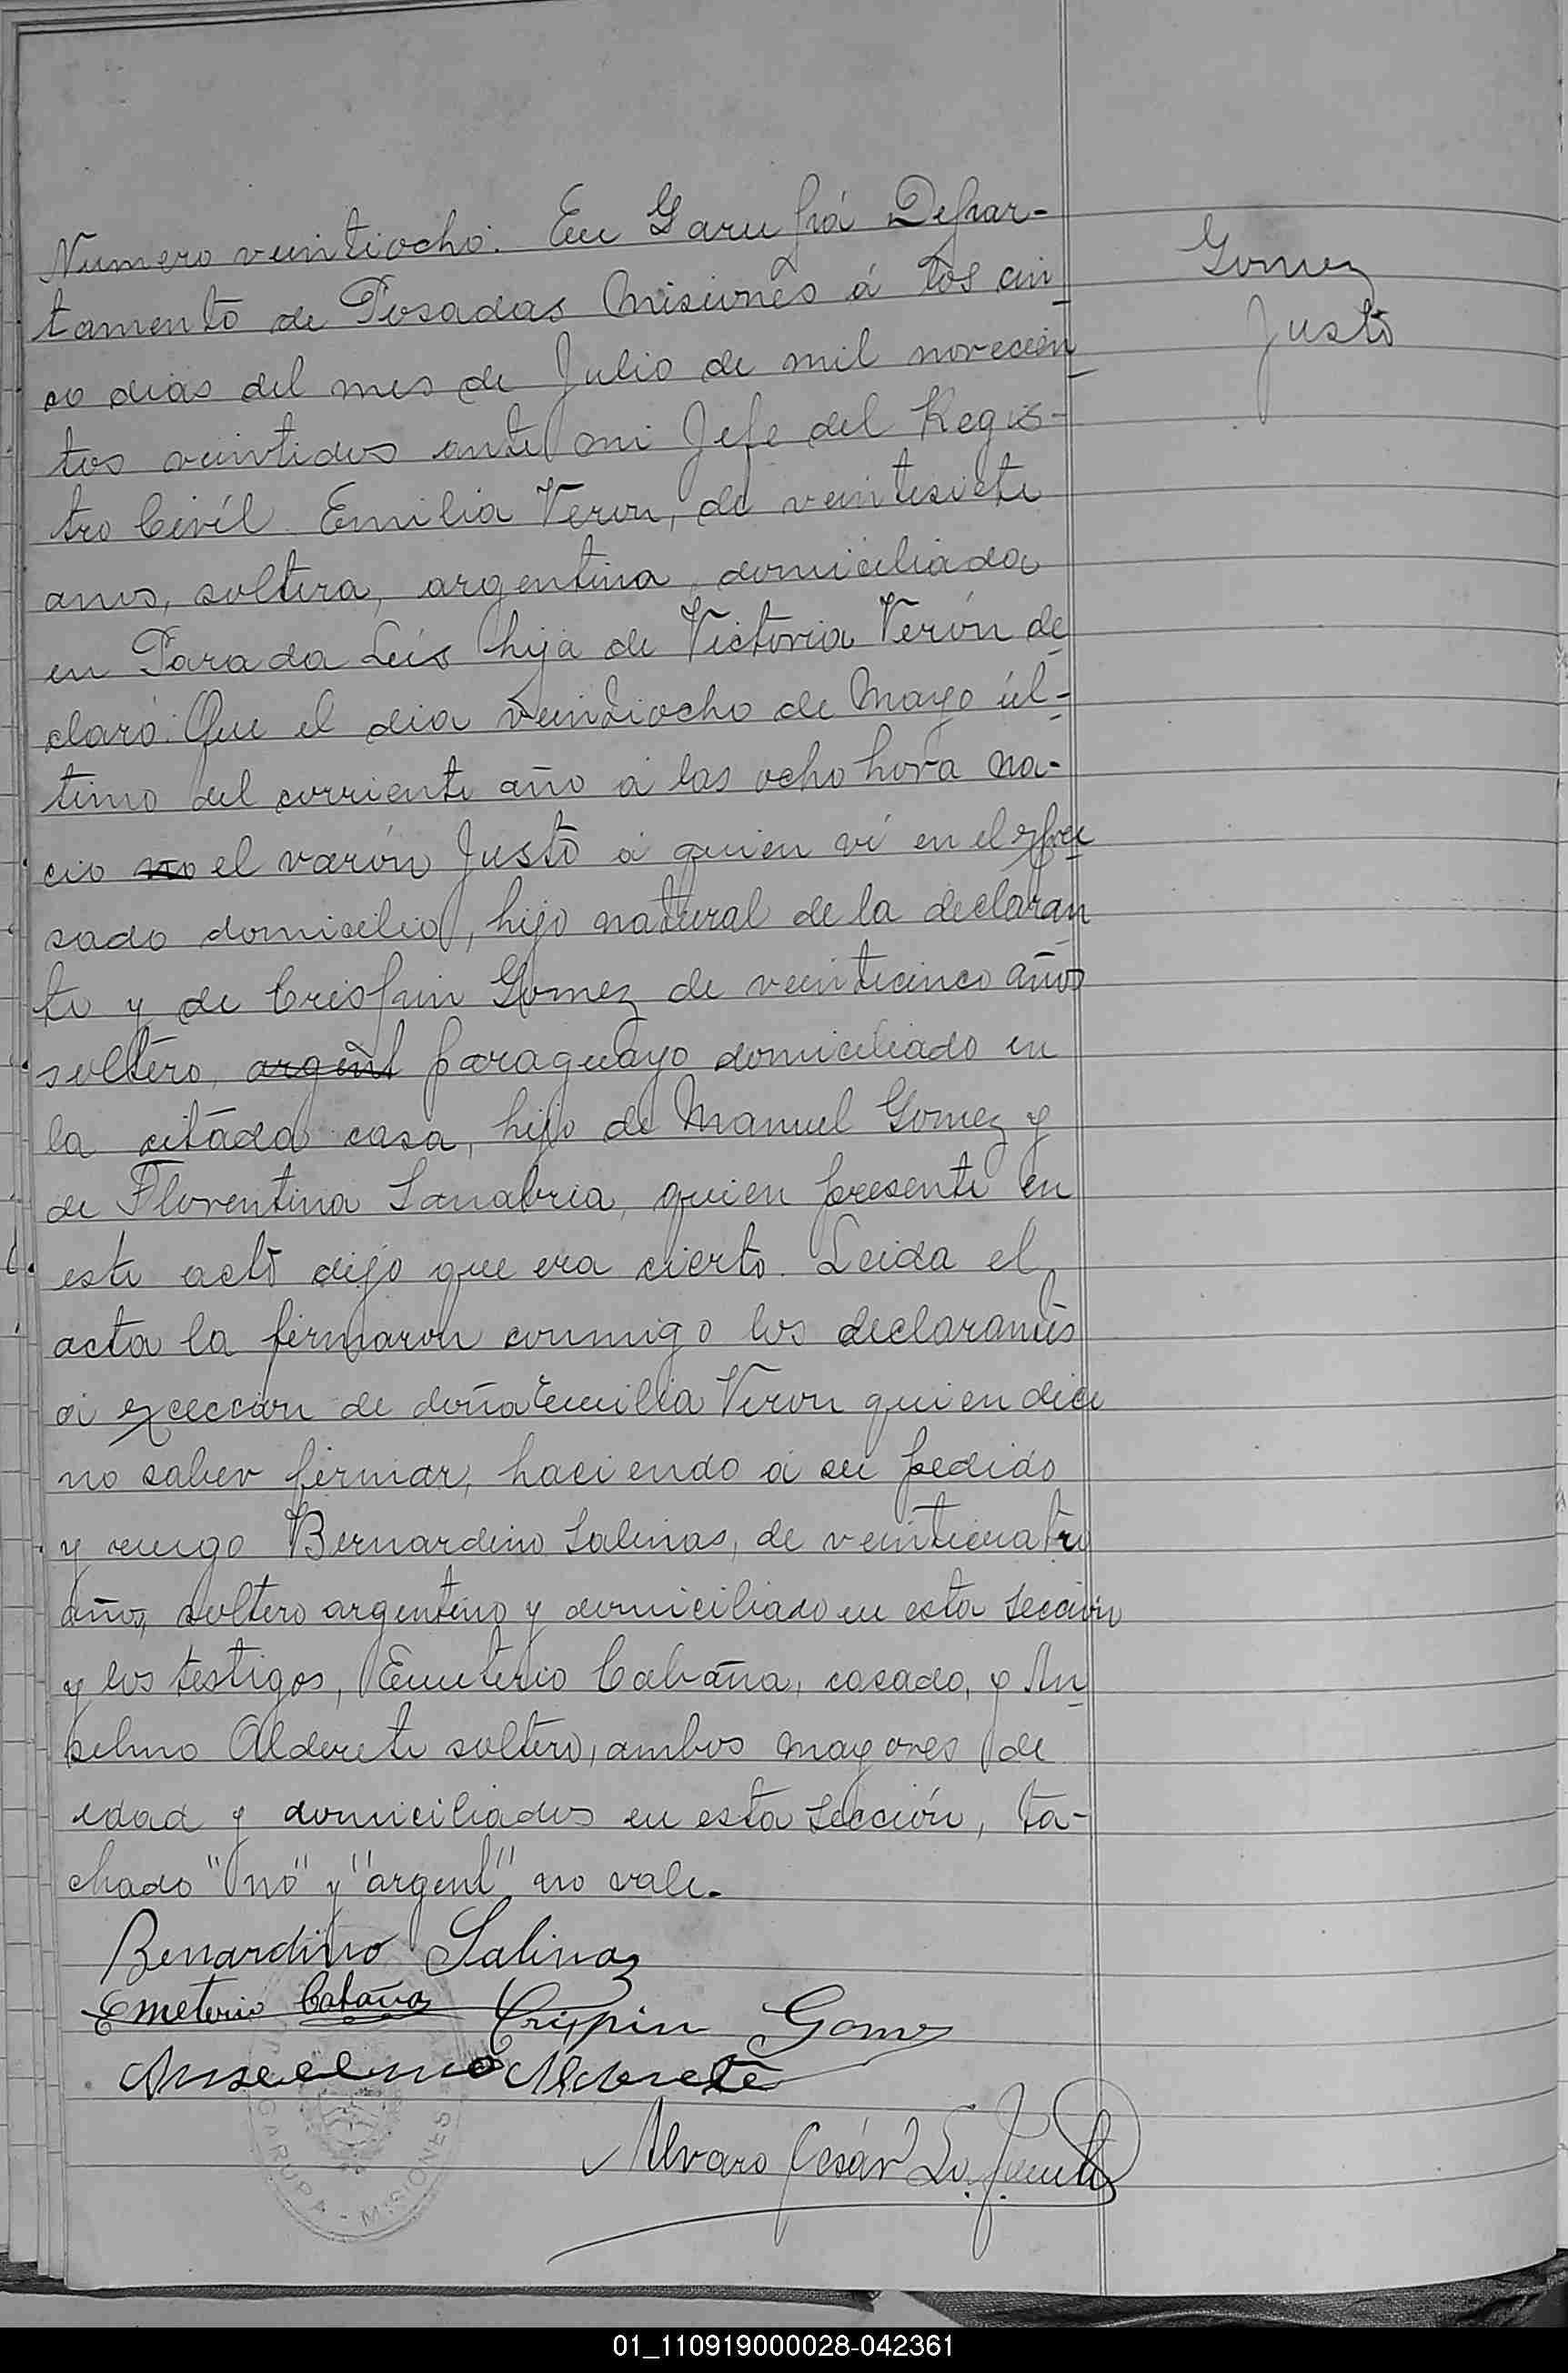 Numero veintiocho. En Garupá Depar-
tamento de Posadas Misiones á los cin
co dias del mes de Julio de mil novecien
tos veintidos ante mi Jefe del Regis-
tro Civíl. Emilia Veron, de veintesiete
anos, soltera, argentina, domiciliada
en Parada Leis hija de Victoria Verón de
claró: Que el dia veintiocho de Mayo úl-
timo del corriente año á las ocho hora na-
cio no el varón Justo á quien ví en el expre
sado domicilio, hijo natural de la declaran
te y de Crispin Gomez de veinticinco años
soltero, argent paraguayo domiciliado en
la citada casa, hijo de Manuel Gomez y
de Florentina Sanabria, quien presente en
este acto dijo que era cierto. Leida el
acta la firmaron conmigo los declarantes
á exección de doña Emilia Veron quien dice
no saber firmar, haciendo á su pedido
y ruego Bernardino Salinas, de veinticuatro
años, soltero argentino y domiciliado en esta sección
y los testigos, Emeterio Cabaña, casado, y An
selmo Alderete soltero, ambos mayores de
edad y domiciliados en esta sección, ta-
chado "no" y "argent" no vale.
Gomez
Justo
Benardino Salinas
Emeterio Cabaña
Crispin Gomez
Anselmo Alderete
Alvaro César
GARUPA - MISIONES
01_110919000028-042361